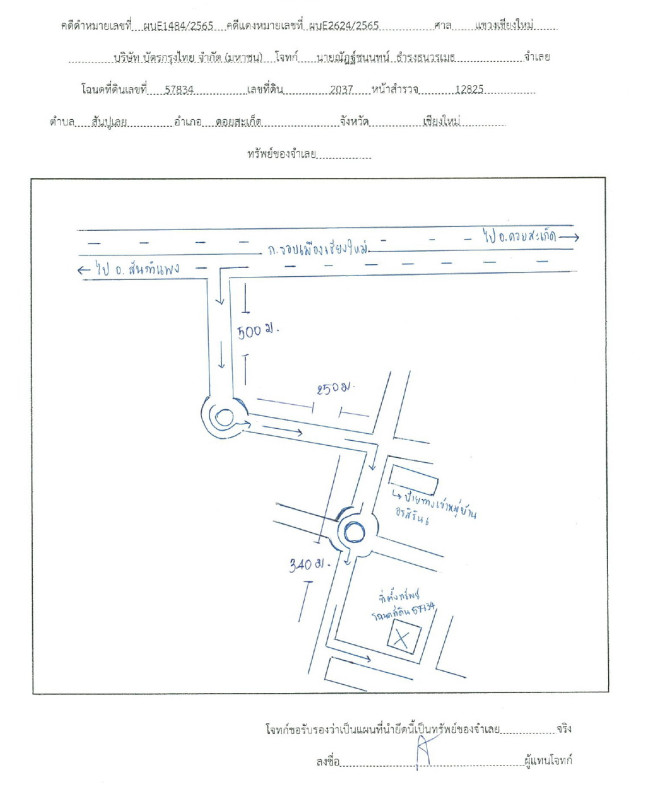 คดีดำหมายเลขที่ ผบE1484/2565 คดีแดงหมายเลขที่ ผบE2624/2565 ศาล แขวงเชียงใหม่
บริษัท บัตรกรุงไทย จำกัด (มหาชน) โจทก์ นายณัฏฐ์ชนนทน์ ธำรงธนวรเมธ จำเลย
โฉนดที่ดินเลขที่ 57834 เลขที่ดิน 2037 หน้าสำรวจ 12825
ตำบล สันปูเลย อำเภอ ดอยสะเก็ด จังหวัด เชียงใหม่
ทรัพย์ของจำเลย
ไป อ.ดอยสะเก็ด
ถ.รอบเมืองเชียงใหม่
ไป อ. สันกำแพง
500 ม.
250 ม.
ป้ายทางเข้าหมู่บ้าน
อรสิริน 6
340 ม.
ที่ตั้งทรัพย์
โฉนดที่ดิน 57834
โจทก์ขอรับรองว่าเป็นแผนที่นำยึดนี้เป็นทรัพย์ของจำเลย จริง
ลงชื่อ ผู้แทนโจทก์